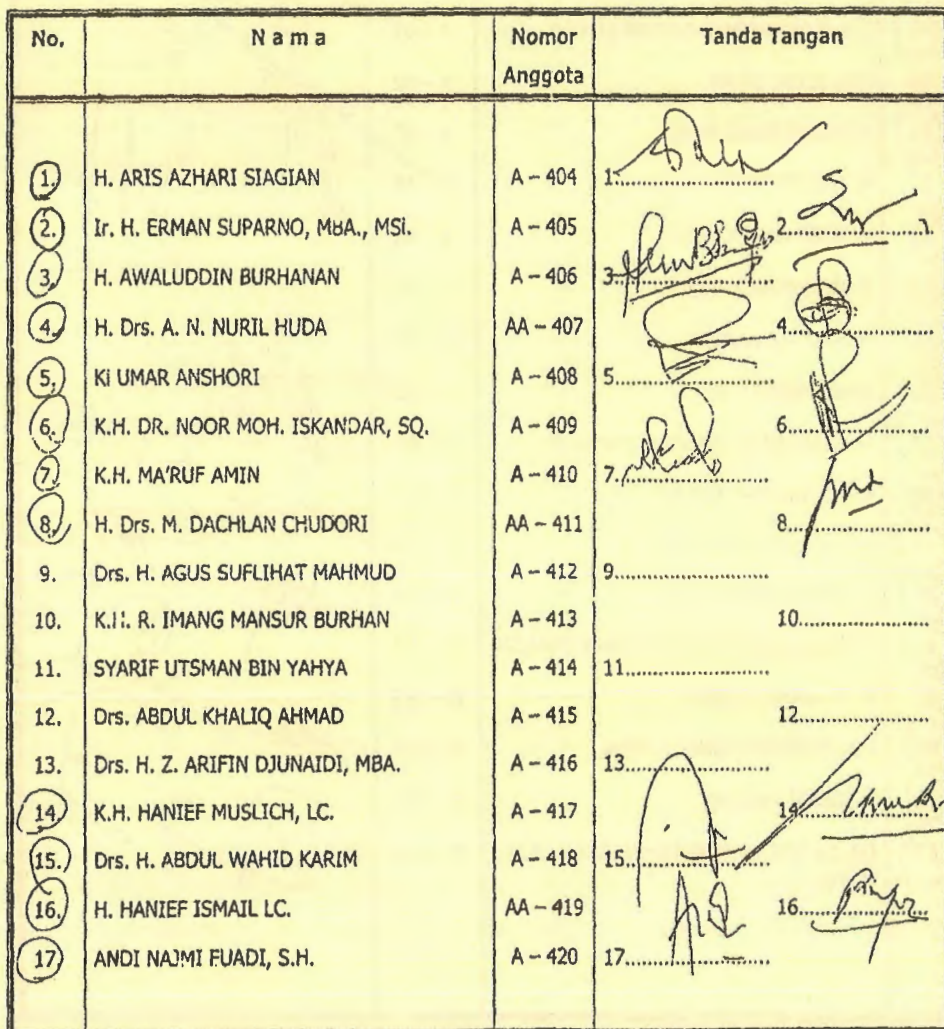 No. N a m a Nomor Anggota Tanda Tangan
1. H. ARIS AZHARI SIAGIAN A – 404 1
2. Ir. H. ERMAN SUPARNO, MBA., MSi. A – 405 2
3. H. AWALUDDIN BURHANAN A – 406 3
4. H. Drs. A. N. NURIL HUDA AA – 407 4
5. Ki UMAR ANSHORI A – 408 5
6. K.H. DR. NOOR MOH. ISKANDAR, SQ. A – 409 6
7. K.H. MA'RUF AMIN A – 410 7
8. H. Drs. M. DACHLAN CHUDORI AA – 411 8
9. Drs. H. AGUS SUFLIHAT MAHMUD A – 412 9
10. K.H. R. IMANG MANSUR BURHAN A – 413 10
11. SYARIF UTSMAN BIN YAHYA A – 414 11
12. Drs. ABDUL KHALIQ AHMAD A – 415 12
13. Drs. H. Z. ARIFIN DJUNAIDI, MBA. A – 416 13
14. K.H. HANIEF MUSLICH, LC. A – 417 14
15. Drs. H. ABDUL WAHID KARIM A – 418 15
16. H. HANIEF ISMAIL LC. AA – 419 16
17 ANDI NAJMI FUADI, S.H. A – 420 17